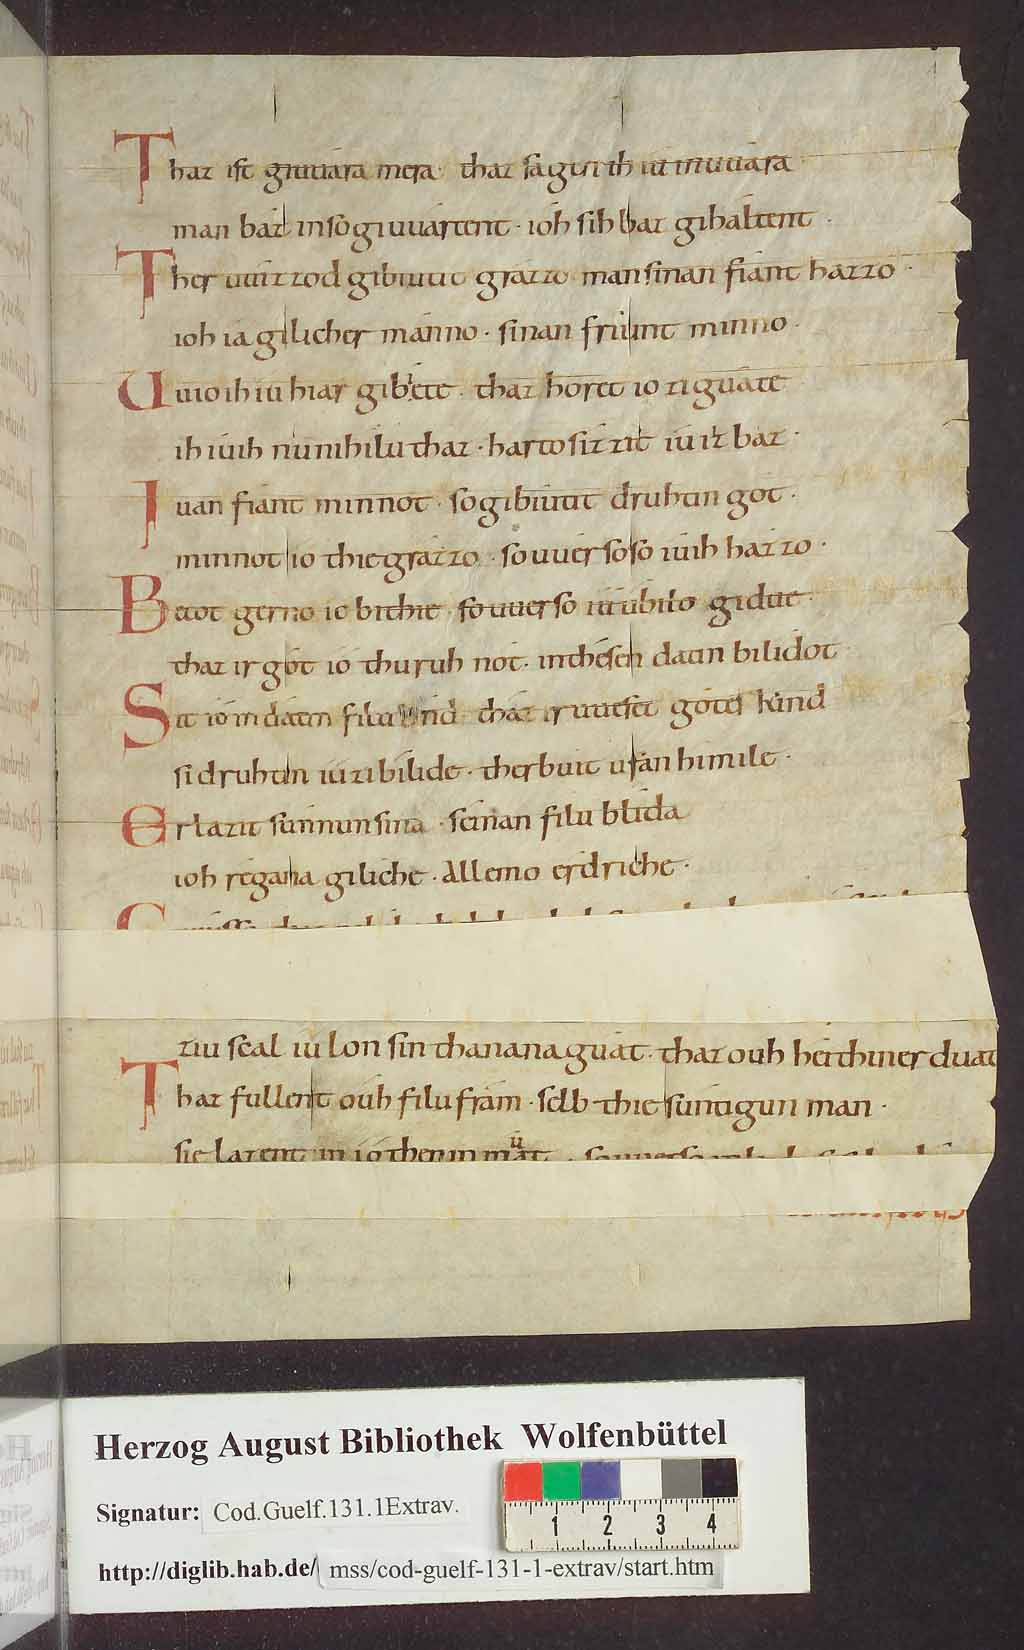 Thaz ist giuuara mera· thaz sagen ih iu in uuara
man baz insogiuuartent · ioh sih baz gihaltent ·
Ther uuizzod gibiutit grazzo man sinan fiant hazzo ·
ioh ia gilicher manno · sinan friunt minno ·
Uuio ih iu hiar gibiete · thaz horet io ziguate
ih iuih nu nihilu thaz · harto sizzit iu iz baz ·
Iuan fiant minnot · sogibiutit druhtin got ·
minnot io thie grazzo · so uuer so so iuih hazzo ·
Betot gerno io bi thie · so uuer so iu ubilo gidue ·
thaz ir got io thuruh not · in thesen datin bilidot
Sit io in daten filu thaz ir uueset gotes kind
si druhtin iu zi bilide · ther buit ufan himile ·
Er lazit sunnun sina · scinan filu blida
ioh regana giliche · allemo erdriche ·
ziu scal iu lon sin thanana guat · thaz ouh heithiner duat
Thaz fullent ouh filu fram · selb thie suntigun man ·
sie lazent in io then in muat
Herzog August Bibliothek Wolfenbüttel
Signatur: Cod.Guelf.131.1Extrav.
1 2 3 4
http://diglib.hab.de/ mss/cod-guelf-131-1-extrav/start.htm